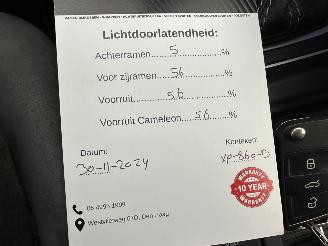 Lichtdoorlatendheid:
Achterramen 5 %
Voor zijramen 56 %
Voorruit 56 %
Voorruit Cameleon 56 %
Datum: Kenteken:
30-11-2024 XP-860-D
WARRANTY
10 YEAR
WARRANTY